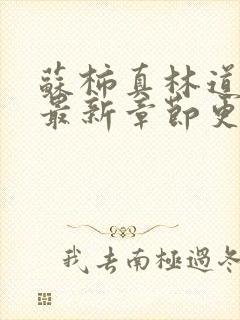 蘇柿真林道
最新章節更
我去南極過冬